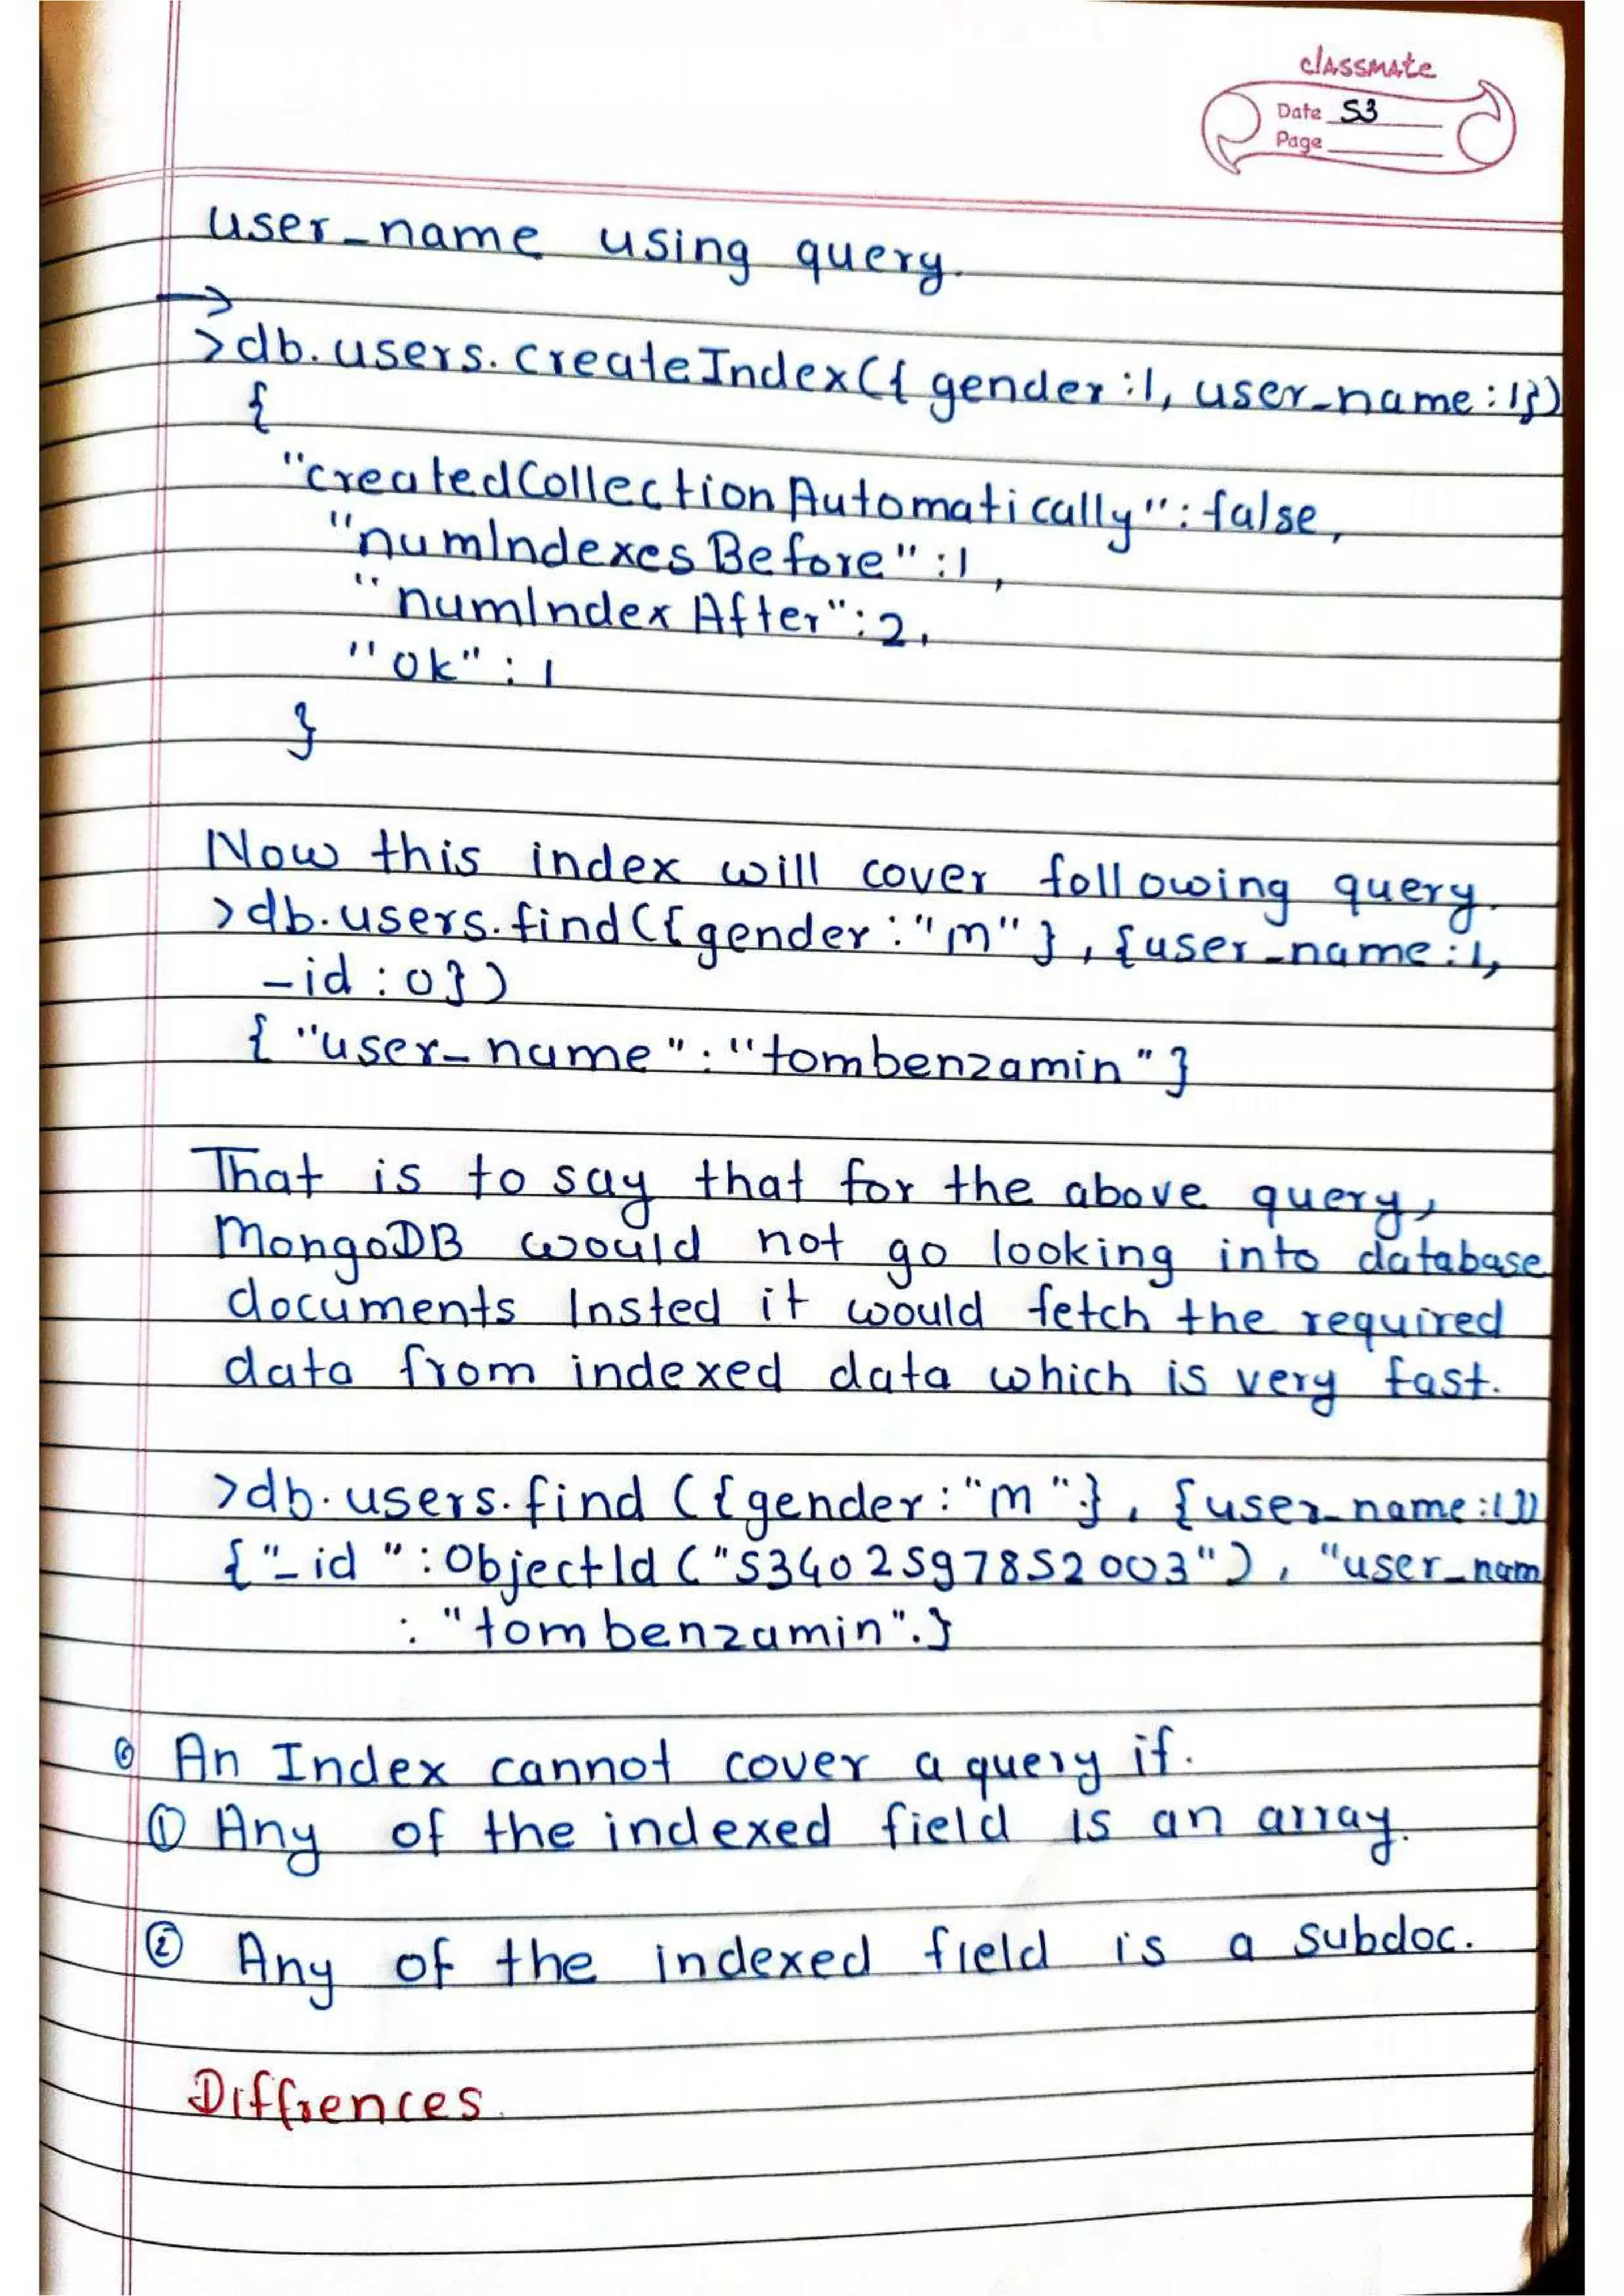 classmate
Date 53
Page
user_name using query.
→
>db.users.createIndex({gender:1, user_name:1})
{
"createdCollectionAutomatically":false,
"numIndexesBefore":1,
"numIndexAfter":2,
"ok":1
}
Now this index will cover following query.
>db.users.find({gender:"m"},{user_name:1,
_id:0})
{"user_name":"tombenzamin"}
That is to say that for the above query,
MongoDB would not go looking into database
documents Insted it would fetch the required
data from indexed data which is very fast.
>db.users.find({gender:"m"},{user_name:1})
{"_id":ObjectId("53402597852003"), "user_nam
:"tombenzamin".}
An Index cannot cover a query if.
① Any of the indexed field is an array.
② Any of the indexed field is a subdoc.
Diffrences.